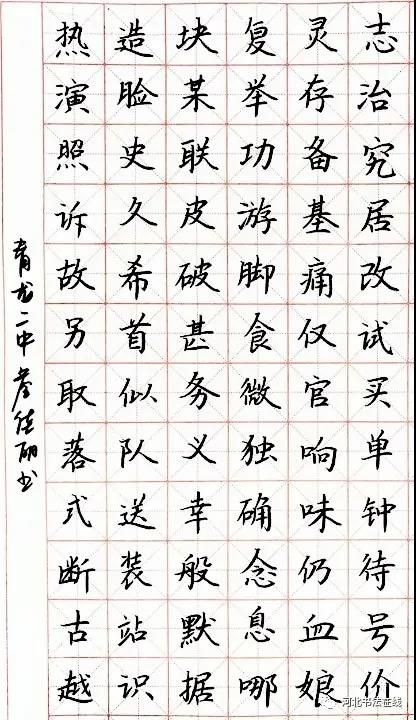 志治究居改试买单钟待号价
灵存备基痛仅官响味仍血娘
复举功游脚食微独确念息哪
块某联皮破甚务义幸般默据
造脸史久希首似队送装站识
热演照诉故另取落式断古越
青龙二中 丽书
河北书法在线